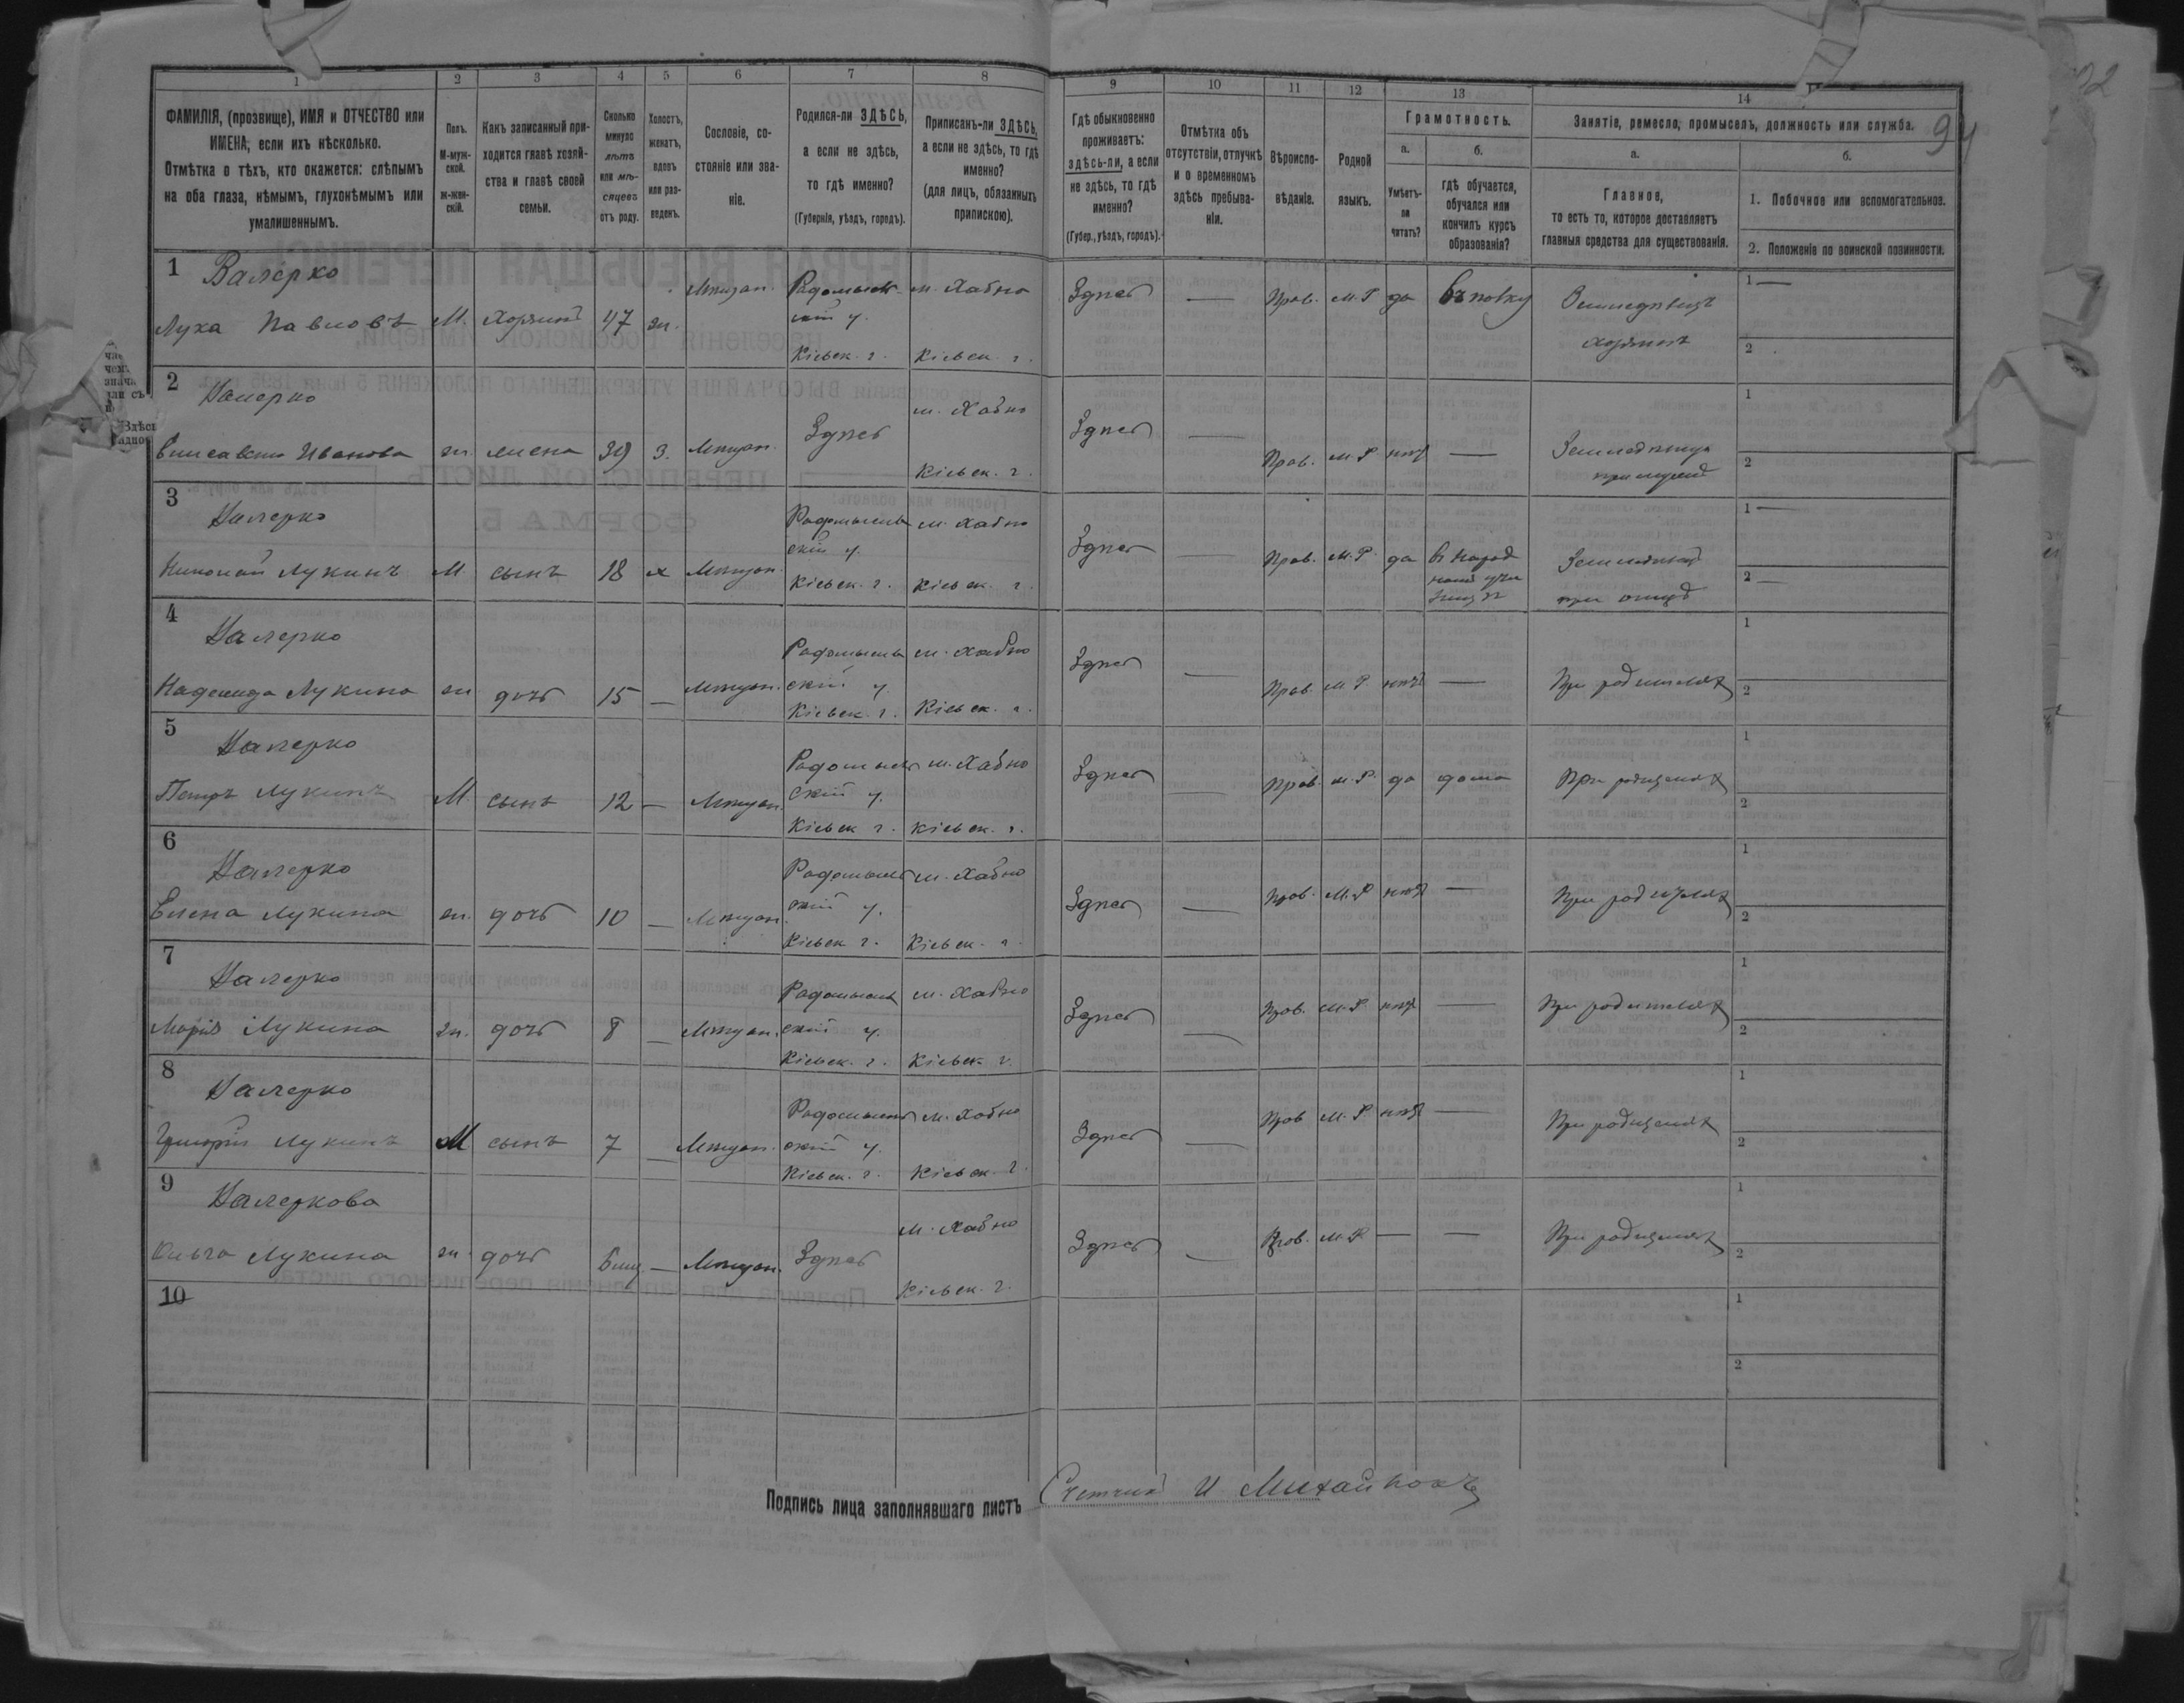 1 2 3 4 5 6 7 8 9 10 11 12 13 14
ФАМИЛІЯ, (прозвище), ИМЯ и ОТЧЕСТВО или
ИМЕНА, если ихъ нѣсколько.
Отмѣтка о тѣхъ, кто окажется: слѣпымъ
на оба глаза, нѣмымъ, глухонѣмымъ или
умалишеннымъ.
Полъ.
М-муж-
ской.
ж-жен-
скій.
Какъ записанный при-
ходится главѣ хозяй-
ства и главѣ своей
семьи.
Сколько
минуло
лѣтъ
или мѣ-
сяцевъ
отъ роду.
Холостъ,
женатъ,
вдовъ
или раз-
веденъ.
Сословіе, со-
стояніе или зва-
ніе.
Родился-ли ЗДѢСЬ,
а если не здѣсь,
то гдѣ именно?
(Губернія, уѣздъ, городъ).
Приписанъ-ли ЗДѢСЬ,
а если не здѣсь, то гдѣ
именно?
(для лицъ, обязанныхъ
припискою).
Гдѣ обыкновенно
проживаетъ:
здѣсь-ли, а если
не здѣсь, то гдѣ
именно?
(Губер., уѣздъ, городъ).
Отмѣтка объ
отсутствіи, отлучкѣ
и о временномъ
здѣсь пребыва-
ніи.
Вѣроиспо-
вѣданіе.
Родной
языкъ.
Грамотность.
а.
Умѣетъ-
ли
читать?
б.
гдѣ обучается,
обучался или
кончилъ курсъ
образованія?
Занятіе, ремесло, промыселъ, должность или служба.
а.
Главное,
то есть то, которое доставляетъ
главныя средства для существованія.
б.
1. Побочное или вспомогательное.
2. Положеніе по воинской повинности.
1 Валерко
Лука Павловъ М. хозяинъ 47 ж. Мѣщан.
Радомысль-
скій у.
Кіевск. г.
м. Хабно
Кіевск. г.
Здѣсь — Прав. М.Р да
Земледѣлецъ
хозяинъ
1 —
2
2 Валерко
Елисавета Ивановна ж. жена 39 з. Мѣщан. Здѣсь
м. Хабно
Кіевск. г.
Здѣсь — Прав. М.Р нѣтъ —
1
2
3 Валерко
Николай Лукинъ М. сынъ 18 х Мѣщан.
Радомысль
скій у.
Кіевск. г.
м. Хабно
Кіевск. г.
Здѣсь — Прав. М.Р. да
въ народ
номъ учи
лищѣ
при отцѣ
1 —
2 —
4 Валерко
Надежда Лукина ж дочь 15 — Мѣщан.
Радомысль
скій у.
Кіевск. г.
м. Хабно
Кіевск. г.
Здѣсь — Прав. М.Р. нѣтъ — При родителях
1
2
5 Валерко
Петръ Лукинъ М. сынъ 12 — Мѣщан.
Радомысль
скій у.
Кіевск г.
м. Хабно
Кіевск. г.
Здѣсь — Прав. М.Р. да дома При родителях
1
2
6 Валерко
Елена Лукина ж. дочь 10 — Мѣщан.
Радомысль
скій у.
Кіевск г.
м. Хабно
Кіевск. г.
Здѣсь — Прав. М.Р нѣтъ — При родителях
1
2
7 Валерко
Марія Лукина ж. дочь 8 — Мѣщан.
Радомысль
скій у.
Кіевск. г.
м. Хабно
Кіевск г.
Здѣсь — Прав. М.Р нѣтъ — При родителях
1
2
8 Валерко
Григорій Лукинъ М сынъ 7 — Мѣщан.
Радомысль
скій у.
Кіевск. г.
м. Хабно
Кіевск. г.
Здѣсь — Прав М.Р нѣтъ — При родителях
1
2
9 Валеркова
Ольга Лукина ж. дочь — Мѣщан. Здѣсь
м. Хабно
Кіевск. г.
Здѣсь — Прав. М.Р — — При родителях
1
2
10
1
2
Подпись лица заполнявшаго листъ Счетчикъ И